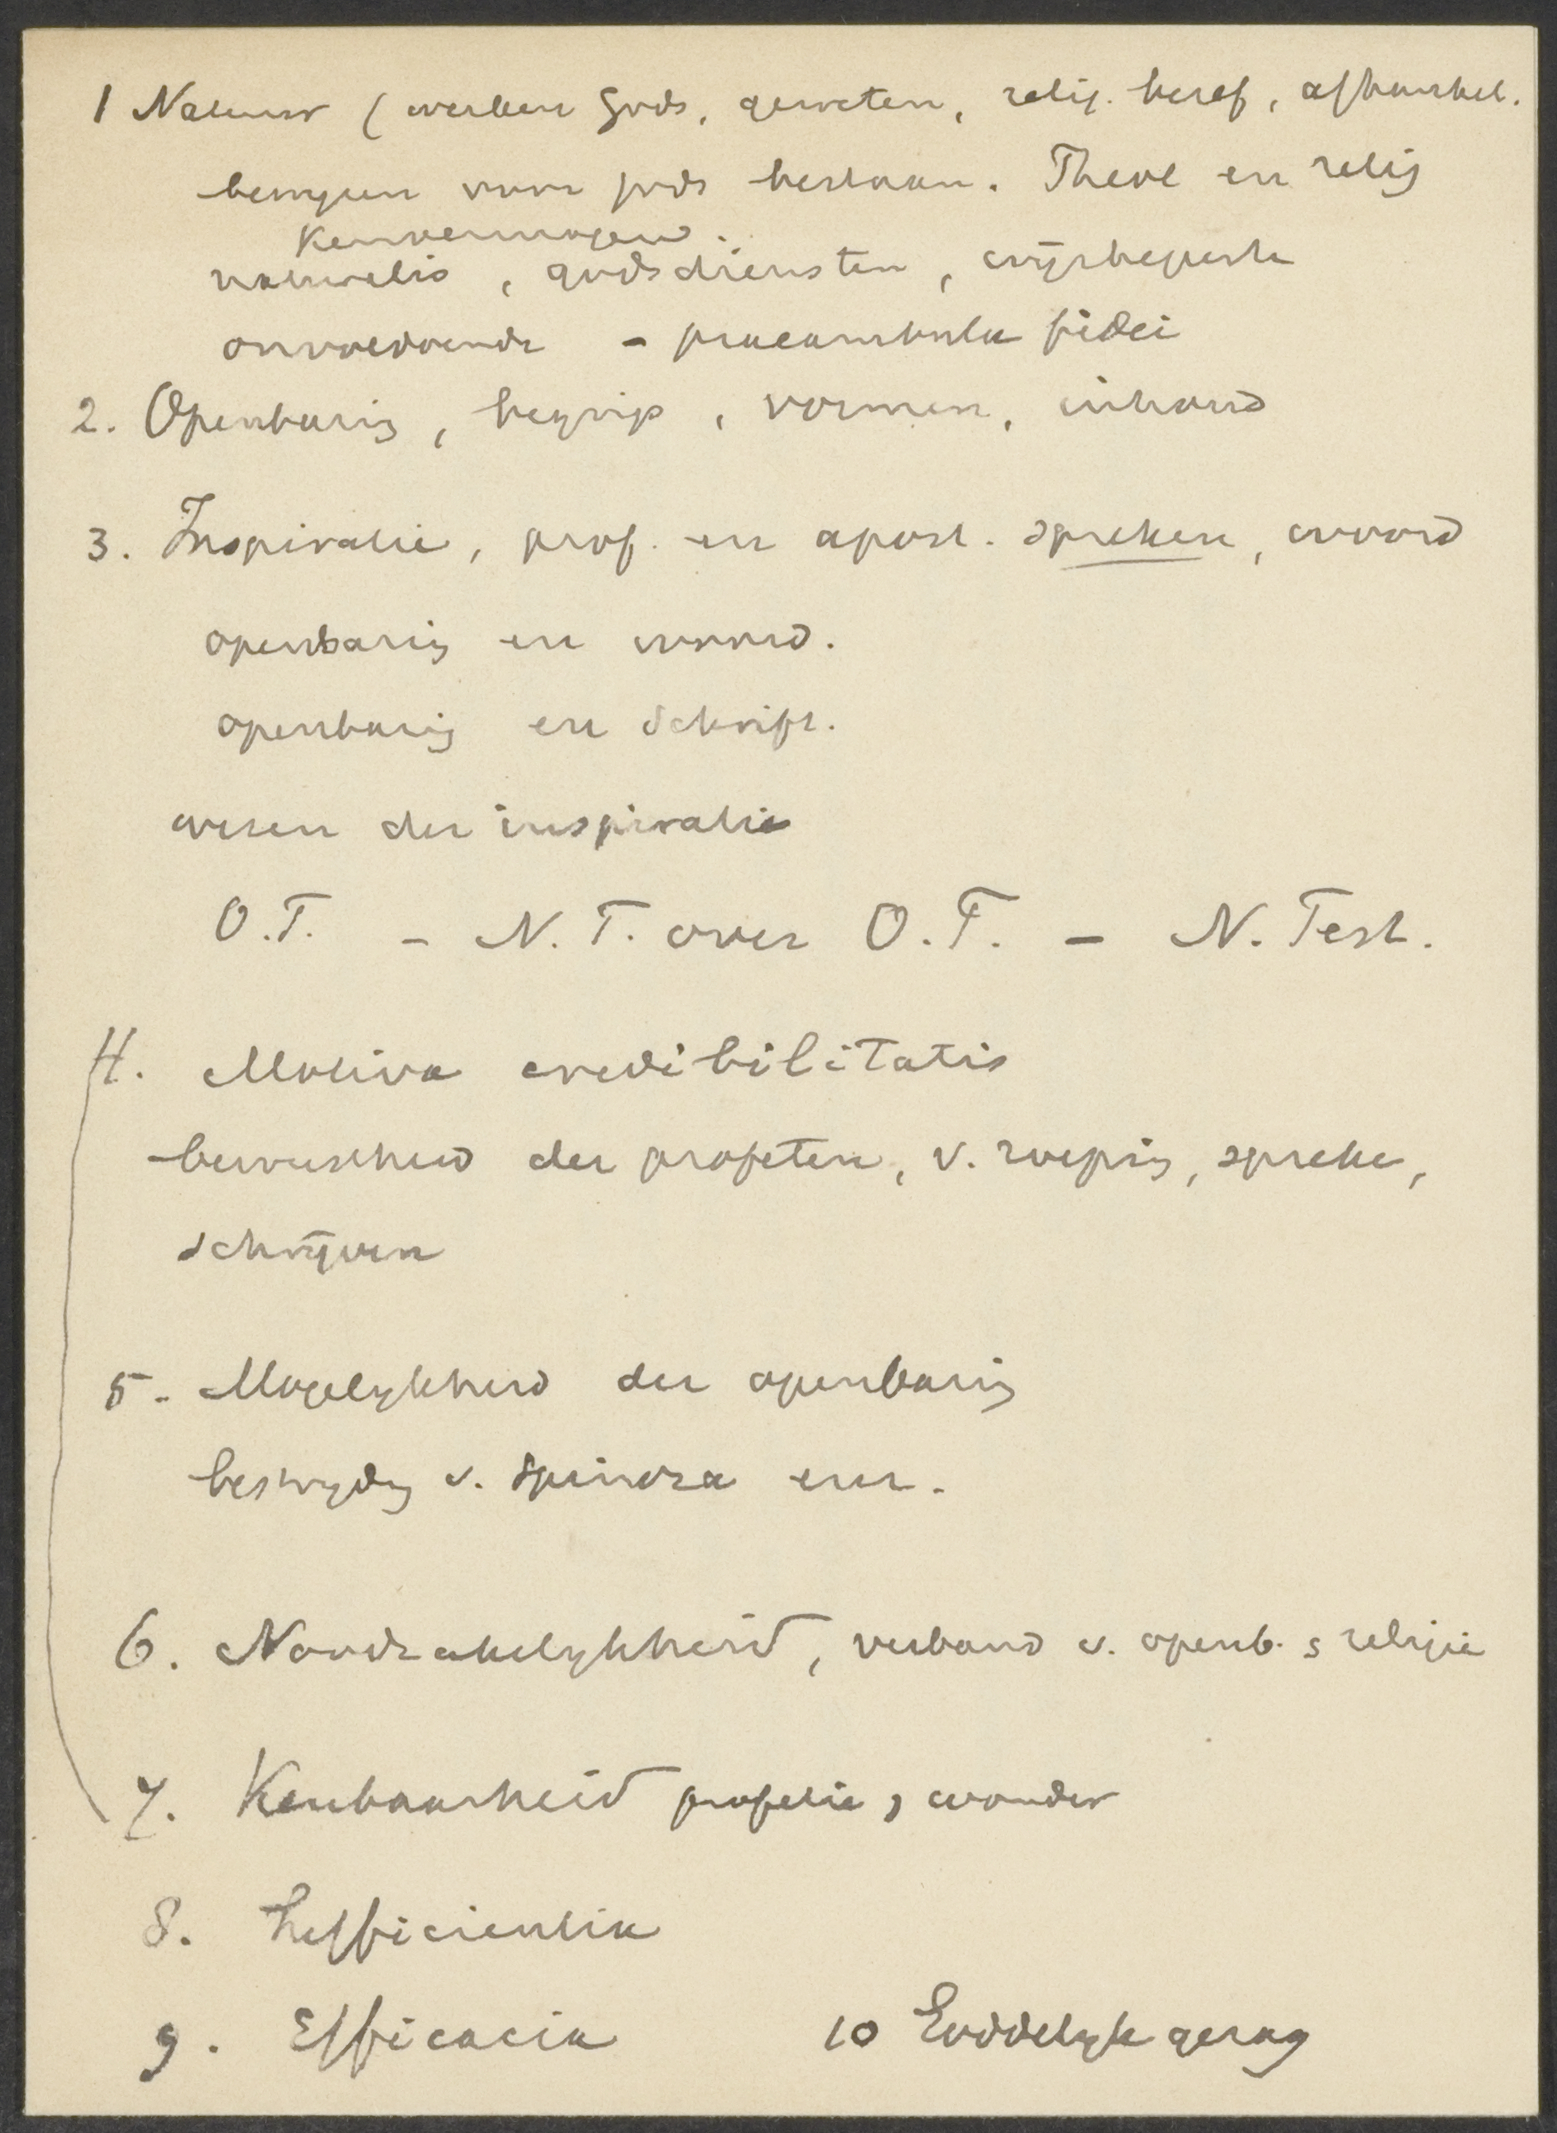 1 Natuur (werken Gods, geweten, relig. besef, afhankel.
bewijzen voor gods bestaan. Theol en relig
kenvermogen.
naturalis, godsdiensten, wijsbegeerte
onvoldoende - praeambula fidei
2. Openbaring, begrip, vormen, inhoud
3. Inspiratie, prof. en apost. spreken, woord
openbaring en woord.
openbaring en Schrift.
wezen der inspiratie
O.T. - N.T. over O.T. - N. Test.
4. Motiva credibilitatis
bewustheid der profeten, v. roeping, spreken,
schrijven
5. Mogelykheid der openbaring
bestryding v. Spinoza enz.
6. Noodzakelykheid, verband v. openb. & religie
7. Kenbaarheid profetie, wonder
8. Sufficientia
9. Efficacia 10 Goddelyk gezag